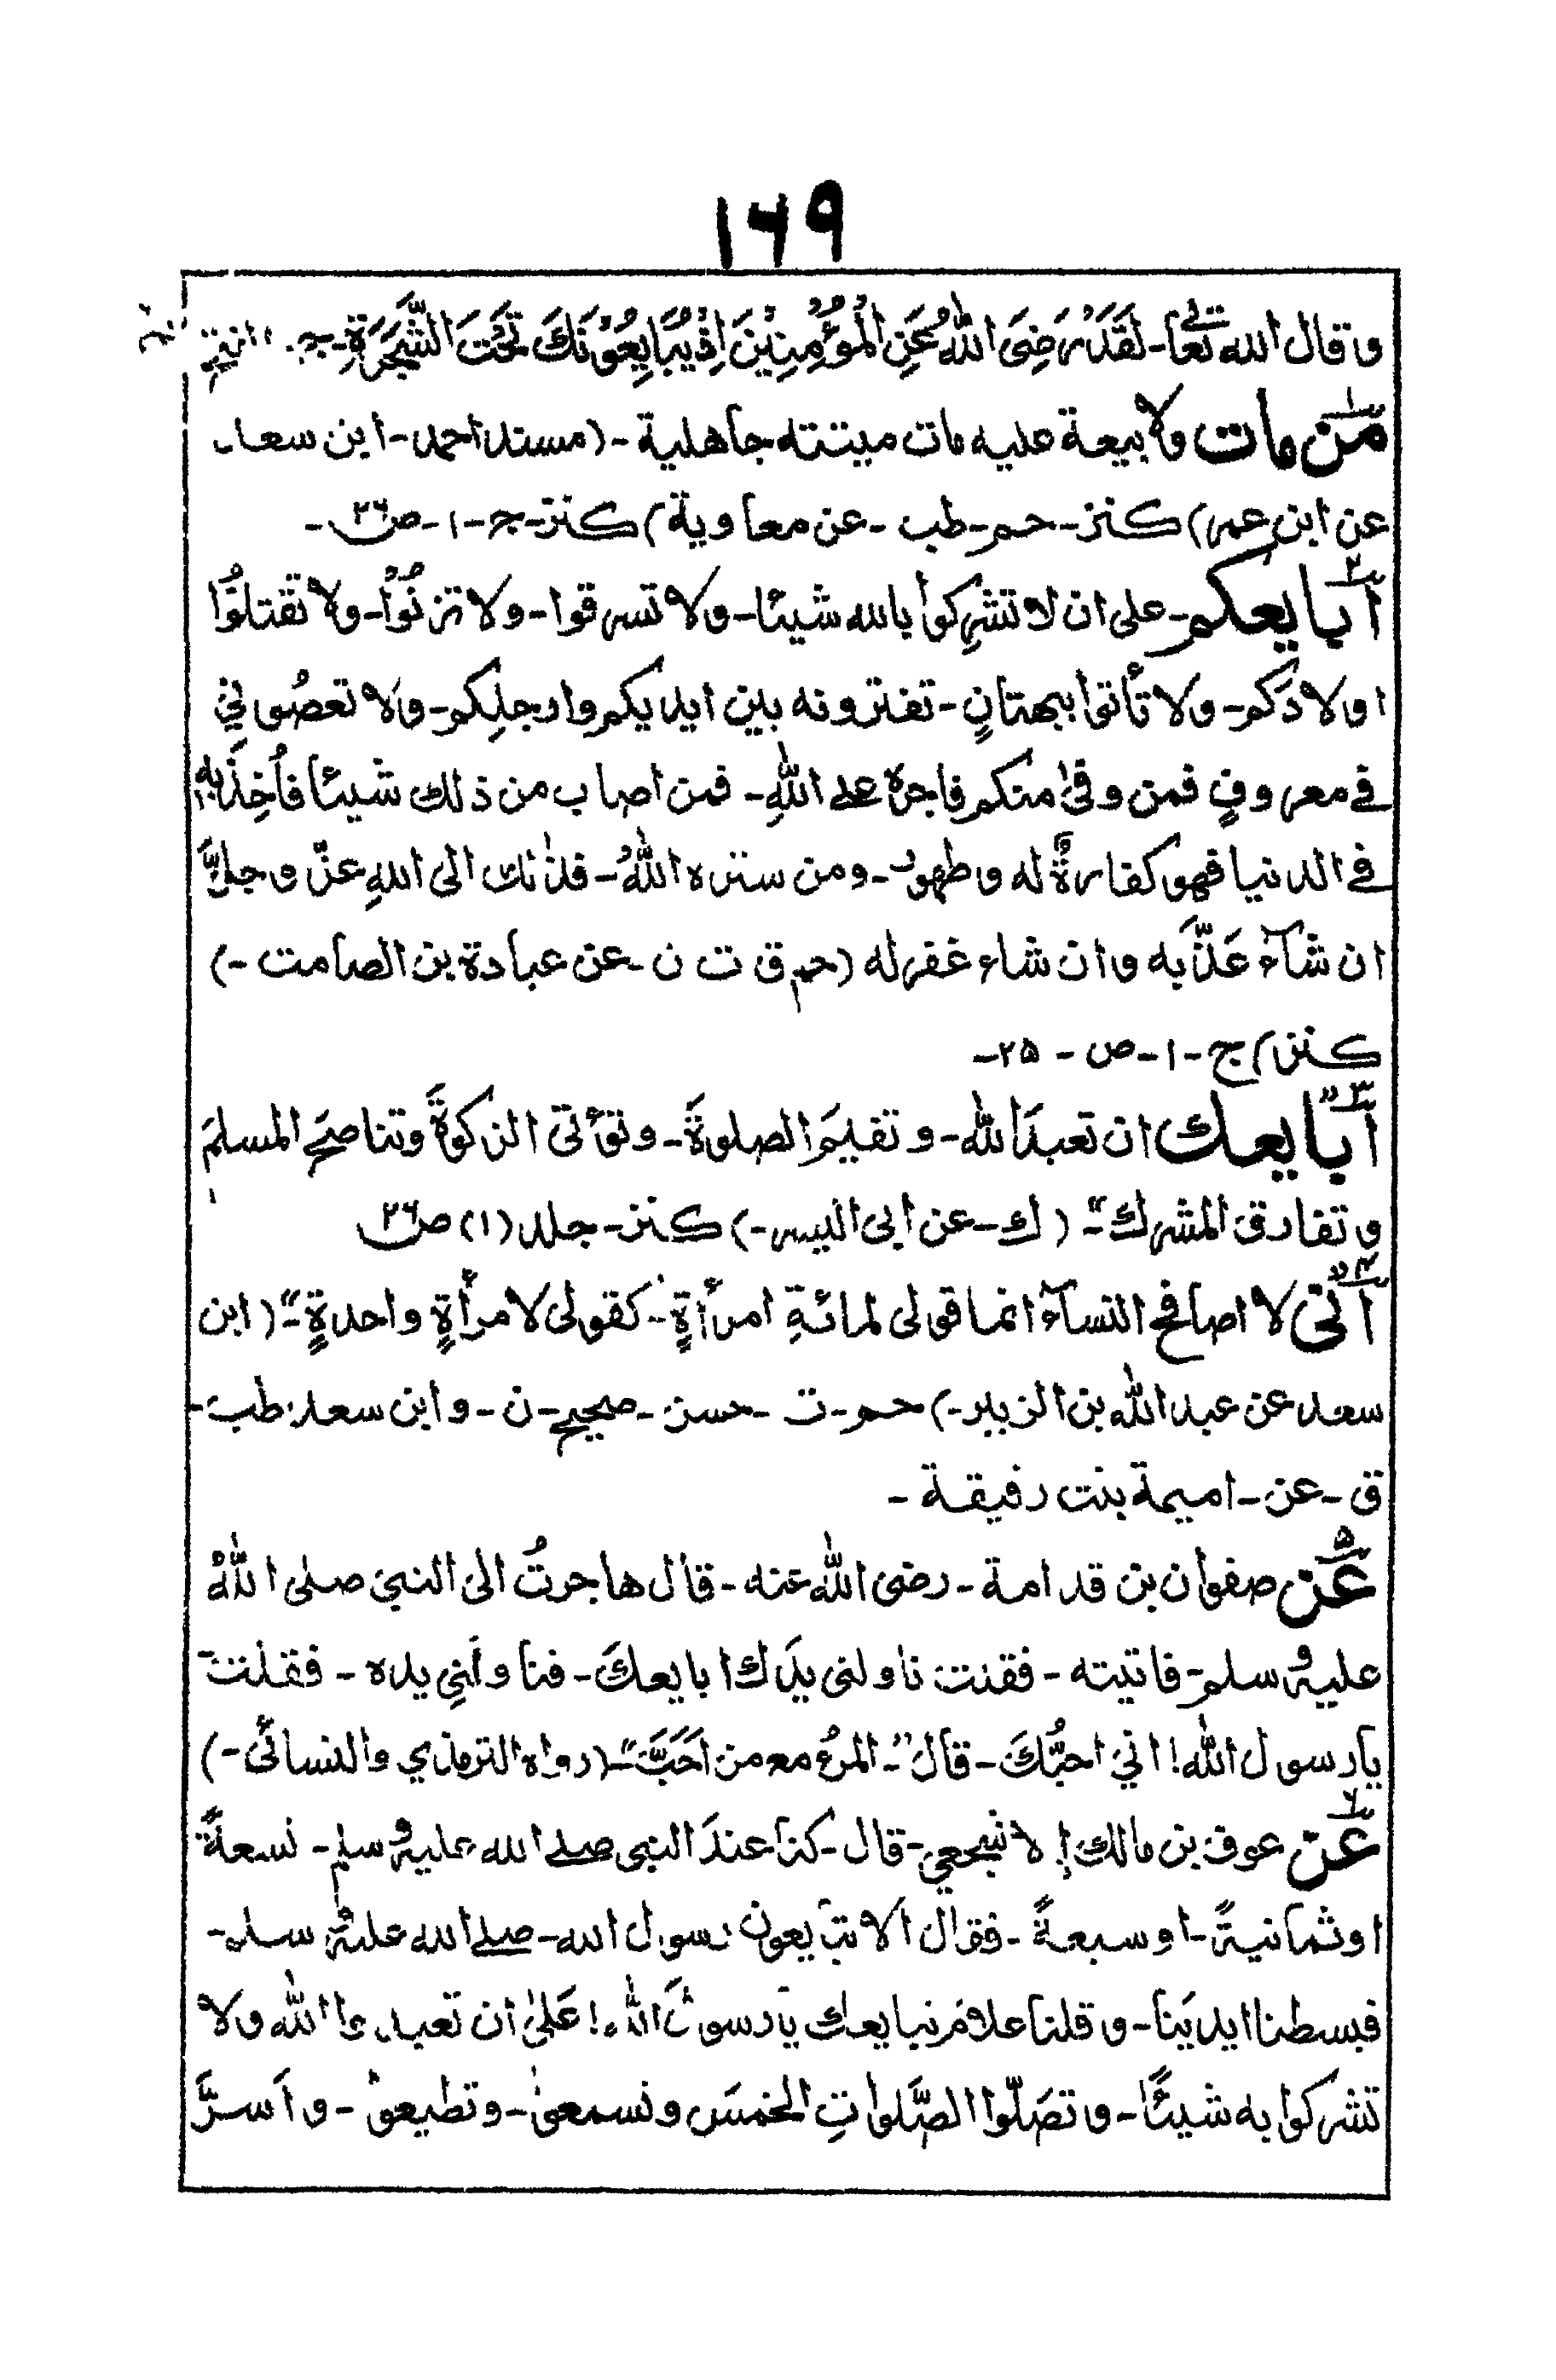 ۱۶۹
وقال الله تعالى۔ لَقَدْ رَضِیَ اللهُ عَنِ الْمُؤْمِنِیْنَ اِذْ یُبَایِعُوْنَكَ تَحْتَ الشَّجَرَةِ۔
۱ مَن مات ولا بیعة علیه مات میتته جاهلیة۔ (مسند احمد۔ ابن سعد۔
عن ابن عمر) کنز۔ حم۔ طب۔ عن معاویة) کنز۔ ج۔ ۱۔ ص ۲۶۔
۲ اُبایعکم۔ علی ان لا تشرِکوا بالله شیئا۔ ولا تسرقوا۔ ولا تزنُوْا۔ ولا تقتلُوْا
اولادَکم۔ ولا تأتوا ببهتانٍ۔ تفترونه بین ایدیکم وارجلِکم۔ ولا تعصُونی
فی معروفٍ فمن وفیٰ منکم فاجرہ علی اللهِ۔ فمن اصاب من ذلك شیئا فاُخِذَ به
فی الدنیا فهو کفارةٌ له وطهور۔ ومن سترہ اللهُ۔ فذٰلك الی اللهِ عزّ وجلَّ
ان شآء عَذَّبه وان شاء غفر له (حم ق ت ن۔ عن عبادة بن الصامت۔)
کنز) ج۔ ۱۔ ص۔ ۲۵۔
۳ "اُبایعك ان تعبدَ الله۔ وتقیمَ الصلوةَ۔ وتؤتی الزکوةَ وتناصحَ المسلمَ
وتفارق المشرك"۔ (ك۔ عن ابی الیسر۔) کنز۔ جلد (۱) ص ۲۶
۴ "انّی لا اصافح النسآء انما قولی لمائةِ امرأةٍ۔ کقولی لامرأةٍ واحدةٍ"۔ (ابن
سعد عن عبد الله بن الزبیر۔) حم۔ ت۔ حسن۔ صحیح۔ ن۔ وابن سعد۔ طب۔
ق۔ عن۔ امیمة بنت رفیقة۔
۵ عَن صفوان بن قدامة۔ رضی الله عنه۔ قال هاجرتُ الی النبی صلی اللهُ
علیه وسلم۔ فاتیته۔ فقلت ناولنی یدَك ابایعكَ۔ فناولَنِی یدہ۔ فقلت
یا رسول الله! انی احبُّكَ۔ قال"۔ المرءُ مع من اَحَبَّ"۔ (رواہ الترمذی والنسائی۔)
۶ عَن عوف بن مالك الاشجعی۔ قال۔ کنا عندَ النبی صلی الله علیه وسلم۔ تسعةً
اوثمانیةً۔ او سبعةً۔ فقال الا تبایعون رسول الله۔ صلی الله علیه وسلم۔
فبسطنا ایدیَنا۔ وقلنا علامَ نبایعك یا رسولَ الله! عَلیٰ ان تعبدوا الله ولا
تشرکوا به شیئًا۔ وتصَلّوا الصَّلواتِ الخمسَ وتسمعوا۔ وتطیعوا۔ واَسرَّ